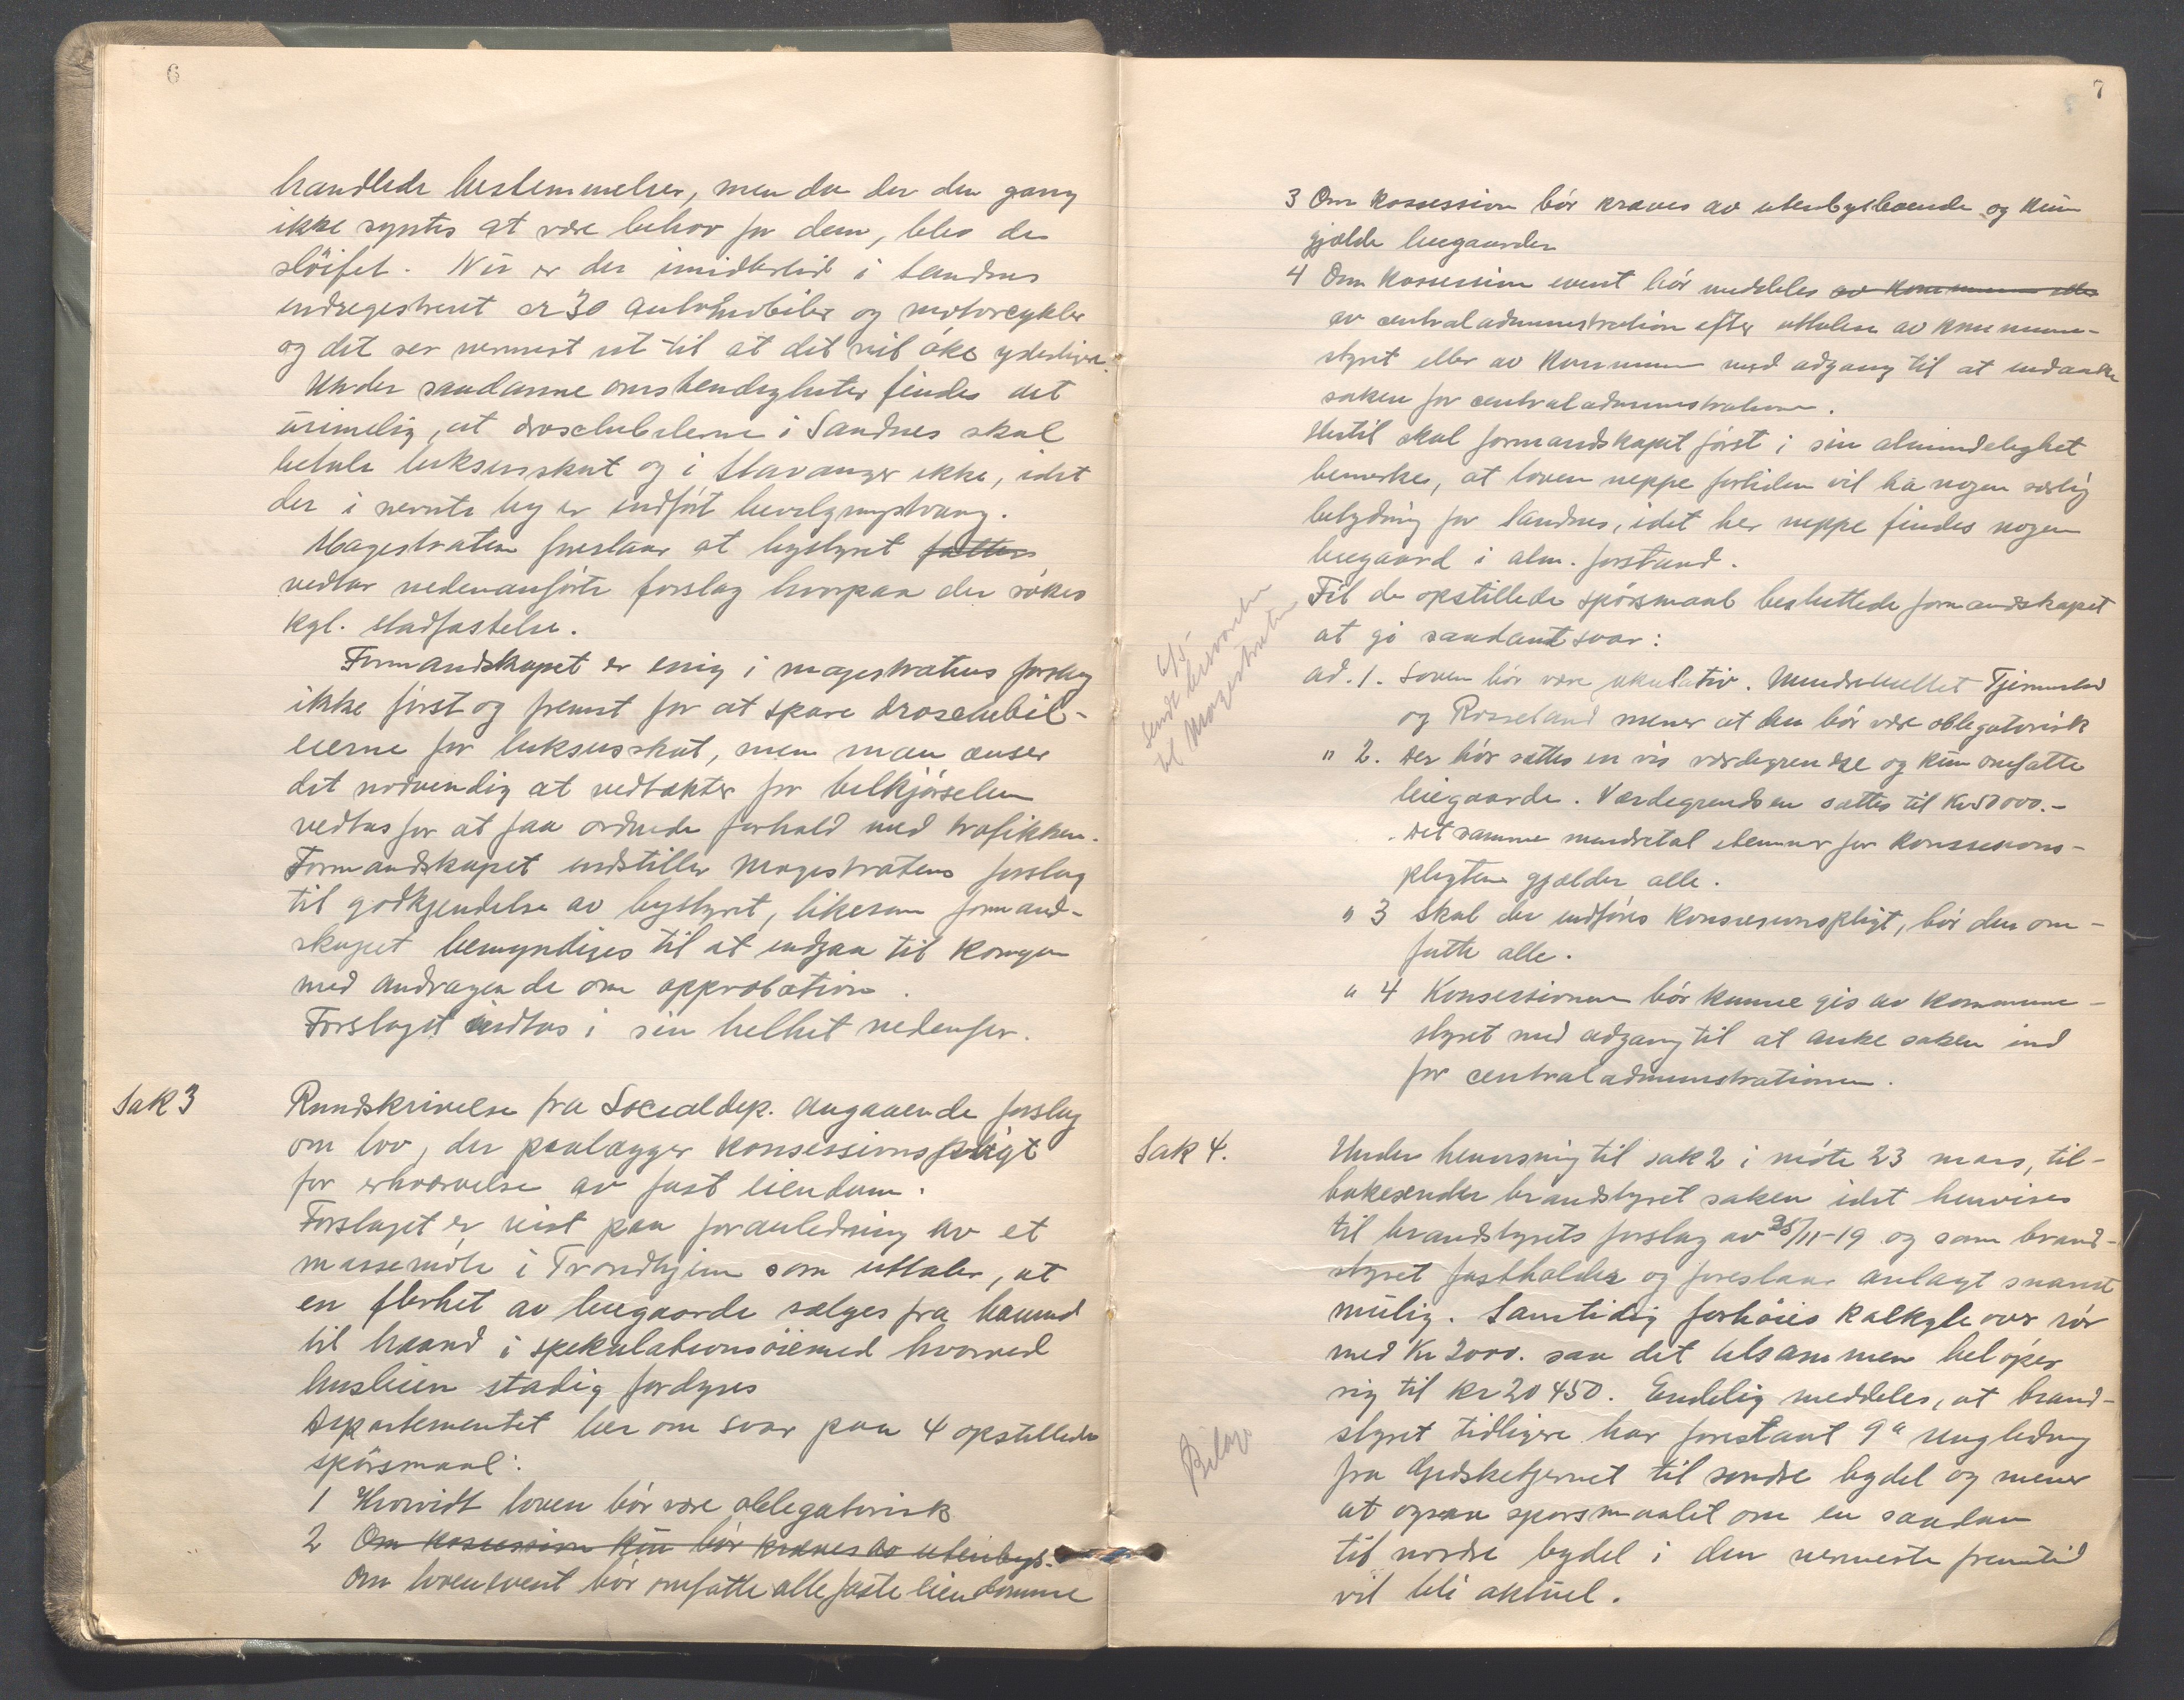 6
handlede bestemmelser, men da der den gang
ikke syntes at være behov for dem, blev de
slöifet. Nu er der imidlertid i Sandnes
indregistrert ca 30 automobiler og motorcykler
og det ser nermest ut til at det vil öke yderligere.
Under saadanne omstendigheter findes det
urimelig, at droschebilerne i Sandnes skal
betale luksusskat og i Stavanger ikke, idet
der i nevnte by er indført bevilgningstvang.
Magistraten foreslaar at bystyret fatter
vedtar nedenanførte forslag hvorpaa der søkes
kgl. stadfæstelse.
Formandskapet er enig i magistratens forslag
ikke først og fremst for at spare droschebil-
eierne for luksusskat, men man anser
det nødvendig at vedtækter for bilkjørselen
vedtas for at faa ordnede forhold med trafikken.
Formandskapet indstiller Magistratens forslag
til godkjendelse av bystyret, likesom formand-
skapet bemyndiges til at indgaa til Kongen
med andragende om approbation.
Forslaget indtas i sin helhet nedenfor.
Sak 3
Rundskrivelse fra Socialdep. angaaende forslag
om lov, der paalægger konsessionspligt
for erhvervelse av fast eiendom.
Forslaget er reist paa foranledning av et
massemöte i Trondhjem som uttaler, at
en flerhet av leiegaarde sælges fra haand
til haand i spekulationsöiemed hvorved
husleien stadig fordyres
Departementet ber om svar paa 4 opstillede
spörsmaal:
1 Hvorvidt loven bör være obligatorisk
2 Om konsession kun bör kræves av utenbys-
Om loven event bör omfatte alle faste eiendomme
7
3 Om konsession bör kræves av utenbysboende og kun
gjælde leiegaarder
4 Om konsession event bör meddeles av kommunen eller
av centraladministration efter uttalelse av kommune-
styret eller av kommunen med adgang til at indanke
saken for centraladministrationen.
Hertil skal formandskapet först i sin almindelighet
bemerke, at loven neppe fortiden vil ha nogen særlig
betydning for Sandnes, idet her neppe findes nogen
leiegaard i alm. forstand.
Til de opstillede spörsmaal besluttede formandskapet
at gi saadant svar:
6/5
Sendt besvarelse
til Magistraten
ad. 1. Loven bör være fakultativ. Mindretallet Tjemsland
og Rosseland mener at den bör være obligatorisk
" 2. Der bör sættes en vis værdigrendse og kun omfatte
leiegaarde. Værdegrendsen sættes til Kr 50 000.-
Det samme mindretal stemmer for konsesions-
pligten gjælder alle.
" 3 Skal der indføres konsesionspligt, bör den om-
fatte alle.
" 4 Konsessionen bör kunne gis av kommune-
styret med adgang til at anke saken ind
for centraladministrationen.
Sak 4.
Under henvisning til sak 2 i möte 23 mars, til-
bakesender brandstyret saken idet henvises
til brandstyrets forslag av 25/11-19 og som brand-
styret fastholder og foreslaar anlagt snarest
mulig. Samtidig forhöies kalkyle over rör
med Kr 2000. saa det tilsammen belöper
sig til kr 20 450. Endelig meddeles, at brand-
styret tidligere har forestaat 9" ringledning
fra Gjedsketjernet til söndre bydel og mener
at ogsaa spörsmaalet om en saadan
til nordre bydel i den nermeste fremtid
vil bli aktuel.
Bilag